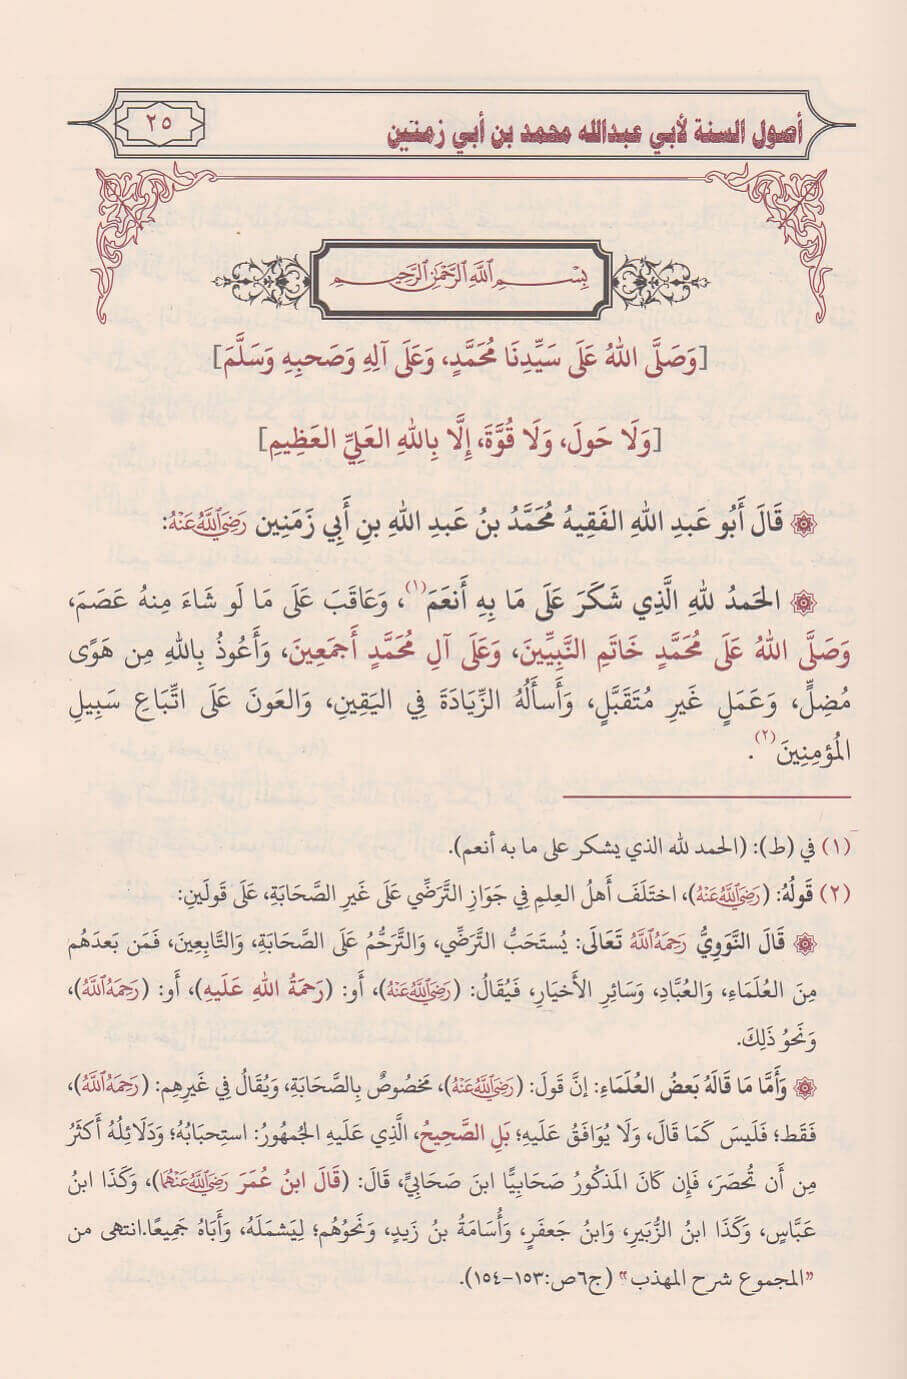 أصول السنة لأبي عبدالله محمد بن أبي زمنين
٢٥
بِسْمِ اللَّهِ الرَّحْمَٰنِ الرَّحِيمِ
[وَصَلَّى اللهُ عَلَى سَيِّدِنَا مُحَمَّدٍ، وَعَلَى آلِهِ وَصَحبِهِ وَسَلَّمَ]
[وَلَا حَولَ، وَلَا قُوَّةَ، إِلَّا بِاللهِ العَلِيِّ العَظِيمِ]
قَالَ أَبُو عَبدِ اللهِ الفَقِيهُ مُحَمَّدُ بنُ عَبدِ اللهِ بنِ أَبِي زَمَنِين رَضِيَ اللَّهُ عَنْهُ:
الحَمدُ للهِ الَّذِي شَكَرَ عَلَى مَا بِهِ أَنعَمَ(١)، وَعَاقَبَ عَلَى مَا لَو شَاءَ مِنهُ عَصَمَ،
وَصَلَّى اللهُ عَلَى مُحَمَّدٍ خَاتَمِ النَّبِيِّينَ، وَعَلَى آلِ مُحَمَّدٍ أَجمَعِينَ، وَأَعُوذُ بِاللهِ مِن هَوًى
مُضِلٍّ، وَعَمَلٍ غَيرِ مُتَقَبَّلٍ، وَأَسأَلُهُ الزِّيَادَةَ فِي اليَقِينِ، وَالعَونَ عَلَى اتِّبَاعِ سَبِيلِ
المُؤمِنِينَ(٢).
(١) في (ط): (الحمد لله الذي يشكر على ما به أنعم).
(٢) قَولُهُ: (رَضِيَ اللَّهُ عَنْهُ)، اختَلَفَ أَهلُ العِلمِ فِي جَوَازِ التَّرَضِّي عَلَى غَيرِ الصَّحَابَةِ، عَلَى قَولَينِ:
قَالَ النَّوَوِيُّ رَحِمَهُ اللَّهُ تَعَالَى: يُستَحَبُّ التَّرَضِّي، وَالتَّرَحُّمُ عَلَى الصَّحَابَةِ، وَالتَّابِعِينَ، فَمَن بَعدَهُم
مِنَ العُلَمَاءِ، وَالعُبَّادِ، وَسَائِرِ الأَخيَارِ، فَيُقَالُ: (رَضِيَ اللَّهُ عَنْهُ)، أَو: (رَحمَةُ اللهِ عَلَيهِ)، أَو: (رَحِمَهُ اللَّهُ)،
وَنَحوُ ذَلِكَ.
وَأَمَّا مَا قَالَهُ بَعضُ العُلَمَاءِ: إِنَّ قَولَ: (رَضِيَ اللَّهُ عَنْهُ)، مَخصُوصٌ بِالصَّحَابَةِ، وَيُقَالُ فِي غَيرِهِم: (رَحِمَهُ اللَّهُ)،
فَقَط؛ فَلَيسَ كَمَا قَالَ، وَلَا يُوَافَقُ عَلَيهِ؛ بَلِ الصَّحِيحُ، الَّذِي عَلَيهِ الجُمهُورُ: استِحبَابُهُ؛ وَدَلَائِلُهُ أَكثَرُ
مِن أَن تُحصَرَ، فَإِن كَانَ المَذكُورُ صَحَابِيًّا ابنَ صَحَابِيٍّ، قَالَ: (قَالَ ابنُ عُمَرَ رَضِيَ اللَّهُ عَنْهُمَا)، وَكَذَا ابنُ
عَبَّاسٍ، وَكَذَا ابنُ الزُّبَيرِ، وَابنُ جَعفَرٍ، وَأُسَامَةُ بنُ زَيدٍ، وَنَحوُهُم؛ لِيَشمَلَهُ، وَأَبَاهُ جَمِيعًا.انتهى من
"المجموع شرح المهذب" (ج٦ص:١٥٣-١٥٤).